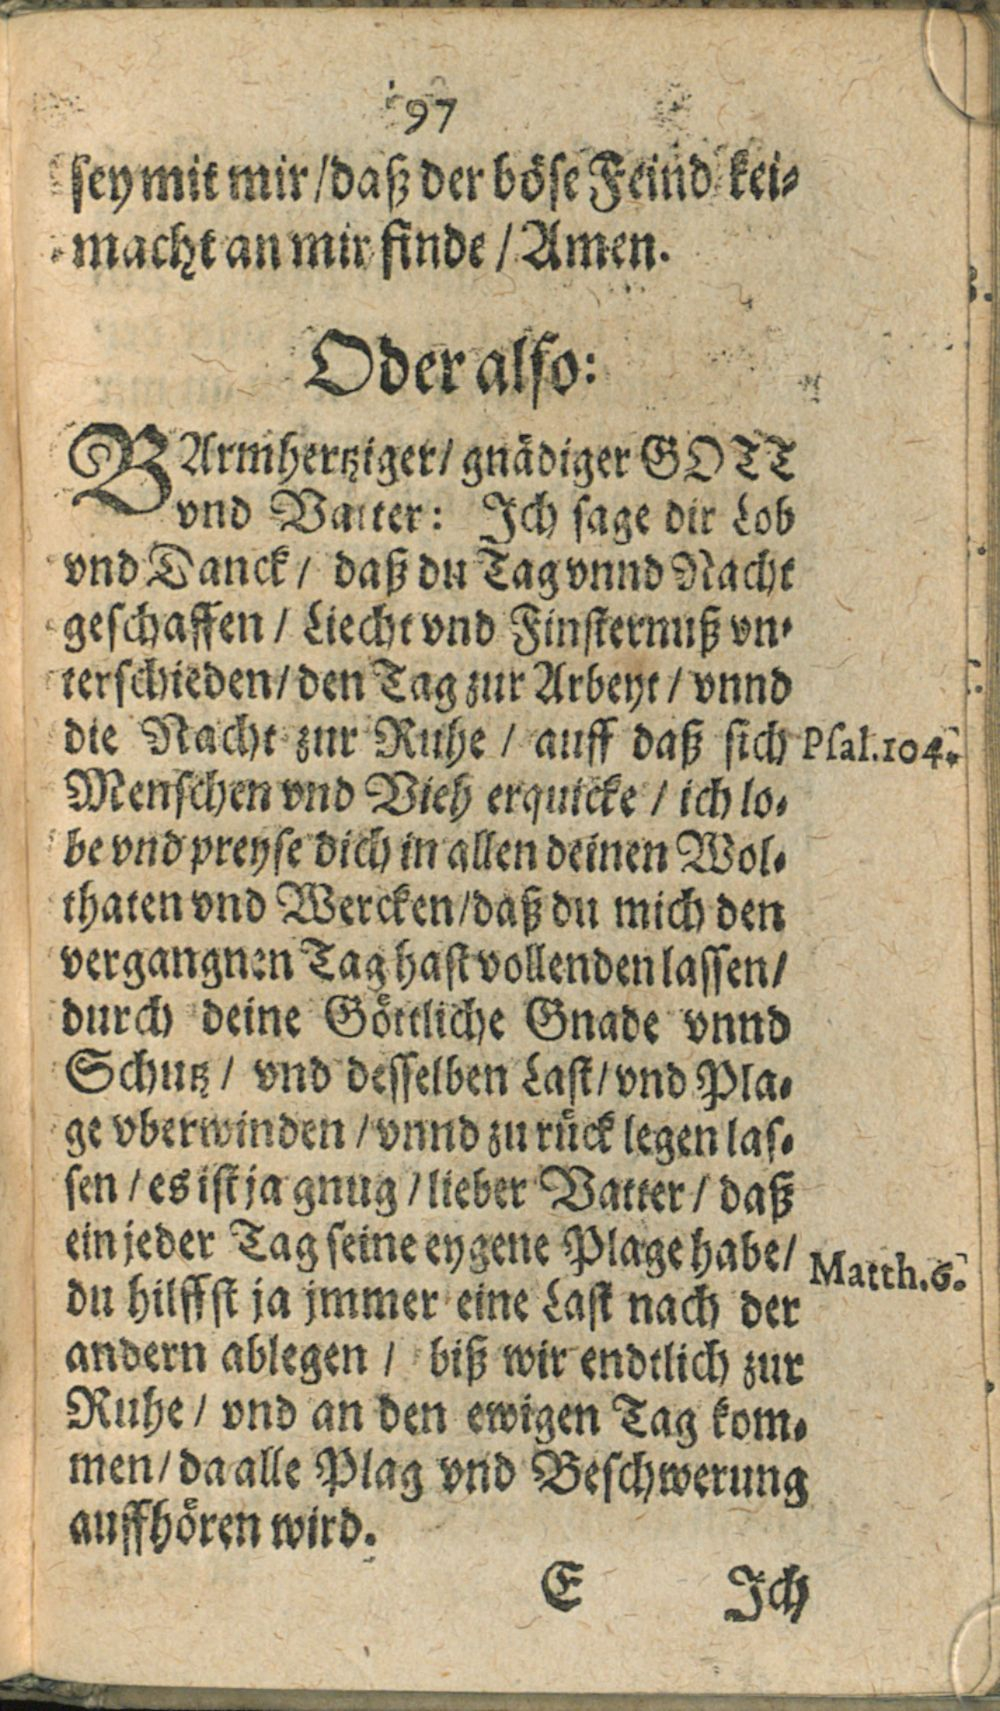 97
sey mit mir / daß der böse Feind kei-
macht an mir finde / Amen.
Oder also:
BArmhertziger / gnädiger GOTT
vnd Vatter: Ich sage dir Lob
vnd Danck / daß du Tag vnnd Nacht
geschaffen / Liecht vnd Finsternuß vn-
terschieden / den Tag zur Arbeyt / vnnd
die Nacht zur Ruhe / auff daß sich Psal. 104.
Menschen vnd Vieh erquicke / ich lo-
be vnd preyse dich in allen deinen Wol-
thaten vnd Wercken / daß du mich den
vergangnen Tag hast vollenden lassen /
durch deine Göttliche Gnade vnnd
Schutz / vnd desselben Last / vnd Pla-
ge vberwinden / vnnd zu rück legen las-
sen / es ist ja gnug / lieber Vatter / daß
ein jeder Tag seine eygene Plage habe / Matth. 6.
du hilffst ja jmmer eine Last nach der
andern ablegen / biß wir endtlich zur
Ruhe / vnd an den ewigen Tag kom-
men / da alle Plag vnd Beschwerung
auffhören wird.
E Ich